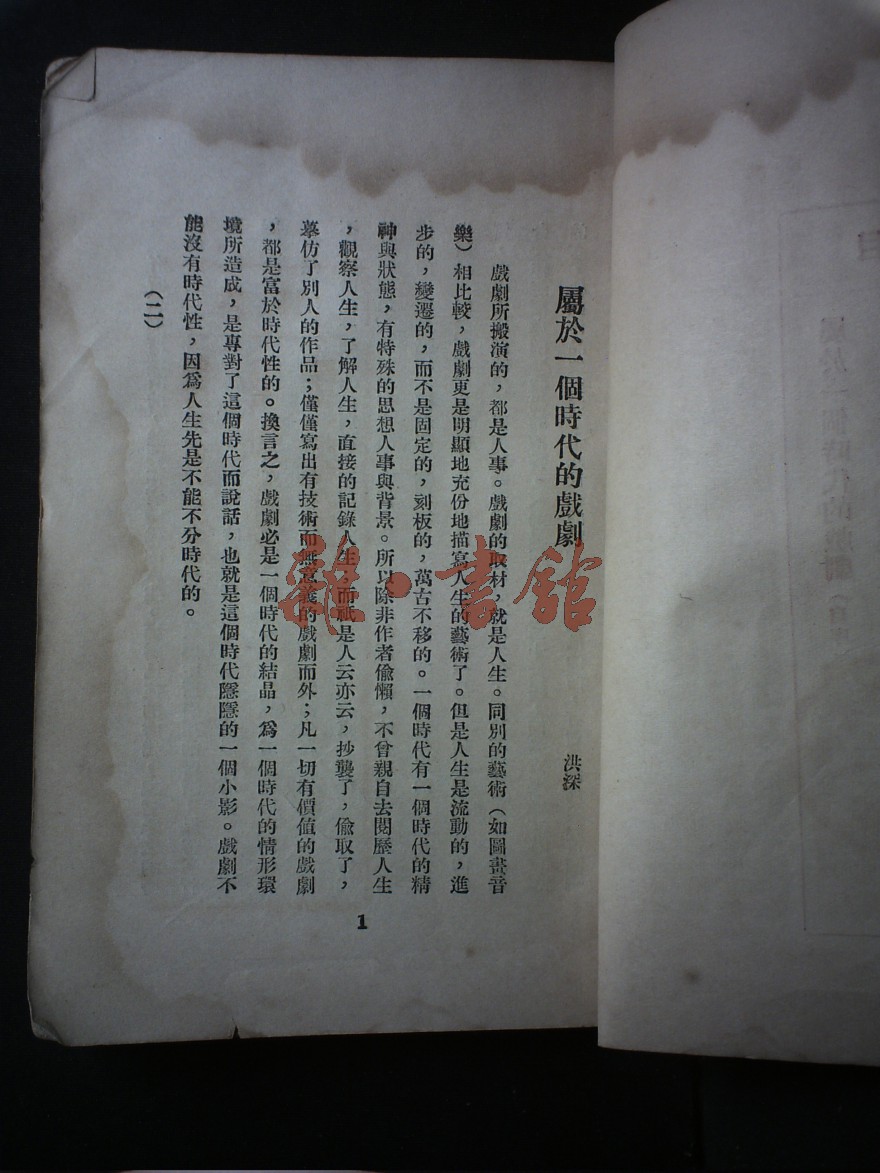 屬於一個時代的戲劇
洪深
戲劇所搬演的，都是人事。戲劇的取材，就是人生。同別的藝術（如圖畫音
樂）相比較，戲劇更是明顯地充份地描寫人生的藝術了。但是人生是流動的，進
步的，變遷的，而不是固定的，刻板的，萬古不移的。一個時代有一個時代的精
神與狀態，有特殊的思想人事與背景。所以除非作者偷懶，不曾親自去閱歷人生
，觀察人生，了解人生，直接的記錄人生，而祇是人云亦云，抄襲了，偷取了，
摹仿了別人的作品；僅僅寫出有技術而無意義的戲劇而外；凡一切有價值的戲劇
，都是富於時代性的。換言之，戲劇必是一個時代的結晶，爲一個時代的情形環
境所造成，是專對了這個時代而說話，也就是這個時代隱隱的一個小影。戲劇不
能沒有時代性，因爲人生先是不能不分時代的。
（二）
1
雜·書館